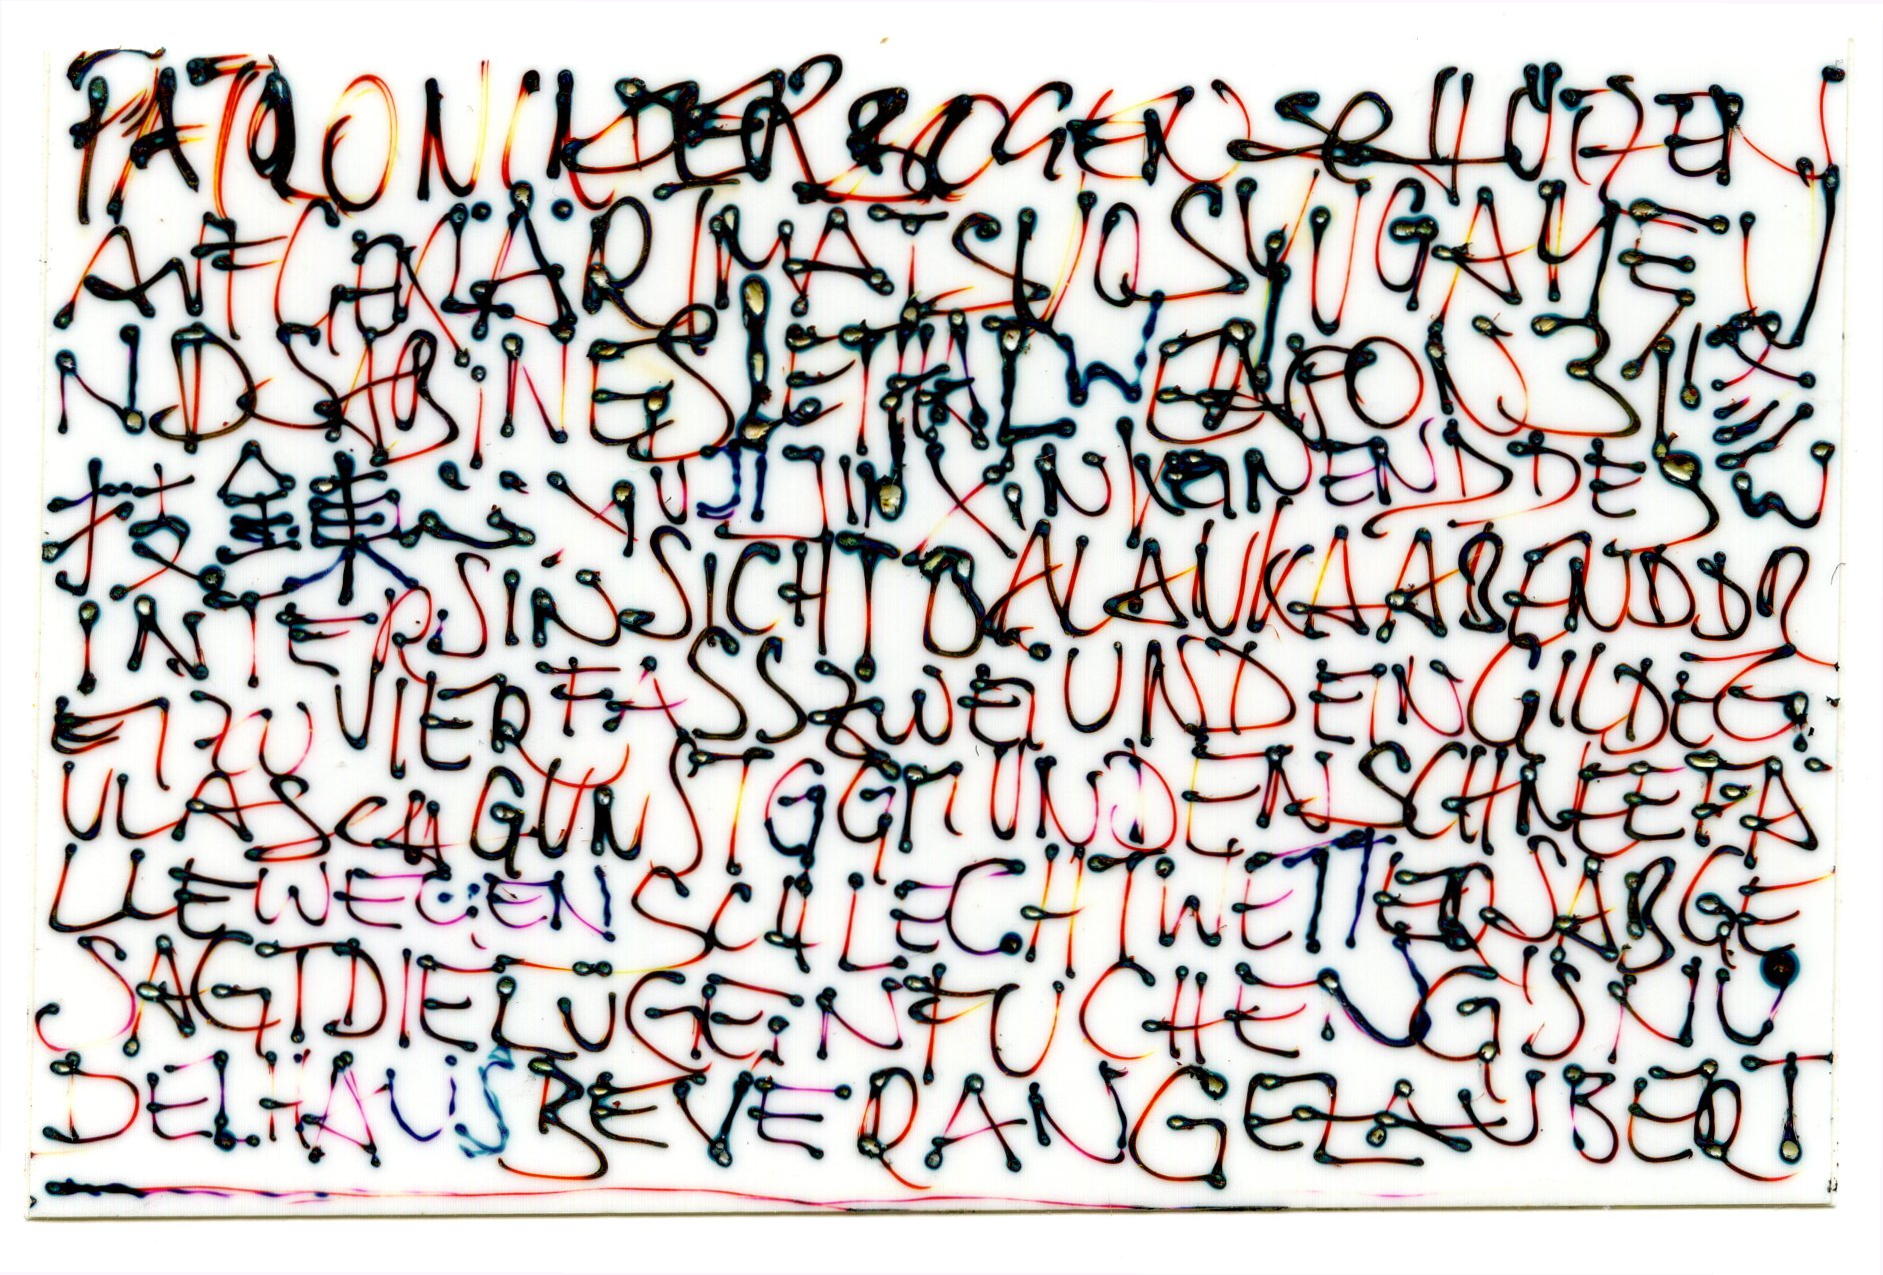 PATRONIN DER BOGENSCHÜTZEN
AUFGEKLÄRT MATSUO SYUGAYE U
ND SABINES LETAL WEAPON 3 彡
技錬 YU JIN XIN KEIN END DES W
INTERS IN SICHT BALANKA ABEND DR
EI ZU VIER FASS ZWEI UND EN GILDEG
ULASCH GUNST GGMUNDEN SCHNEEFÄ
LLE WEGEN SCHLECHTWETTER SABGE
SAGT DIE LUGEN FUCHEN G'S NU
DELHAUS BEVERAN GELAUBERT